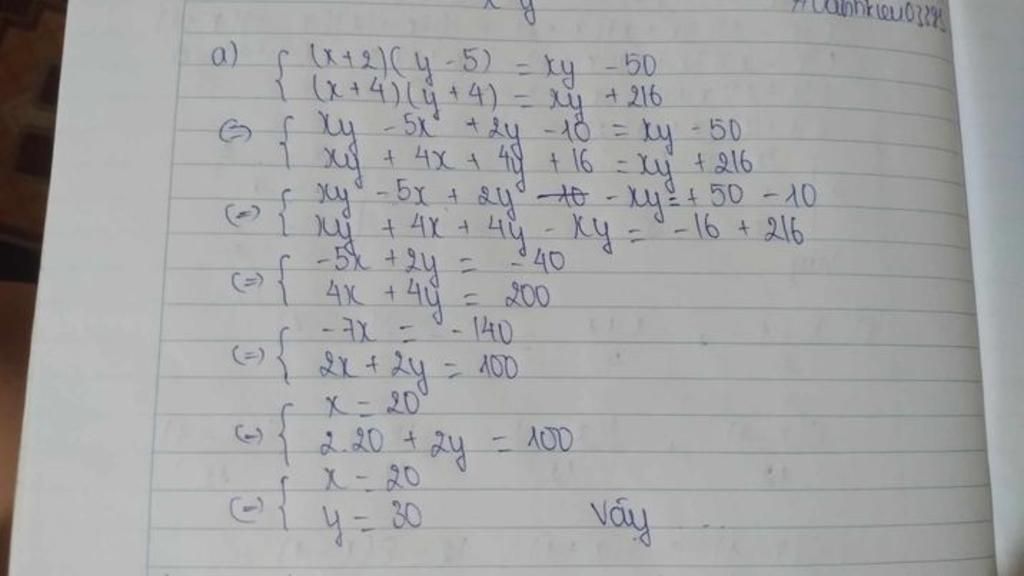 x y
a) { (x+2)(y-5) = xy - 50
(x+4)(y+4) = xy + 216
(=) { xy - 5x + 2y - 10 = xy - 50
xy + 4x + 4y + 16 = xy + 216
(=) { xy - 5x + 2y - xy = + 50 - 10
xy + 4x + 4y - xy = -16 + 216
(=) { -5x + 2y = -40
4x + 4y = 200
(=) { -7x = -140
2x + 2y = 100
(=) { x = 20
2.20 + 2y = 100
(=) { x = 20
y = 30 Vậy ..